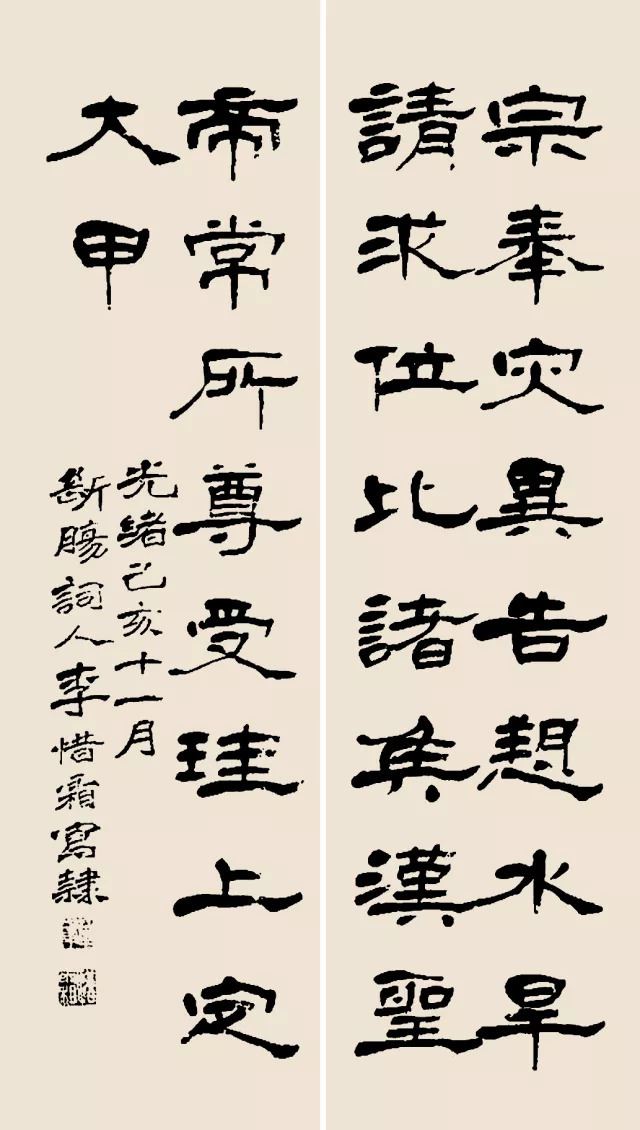 宗奉灾異告懇水旱
請求位比諸矦漢聖
帝常所尊受珪上定
大甲
光緒己亥十一月
斷腸詞人李惜霜寫隸